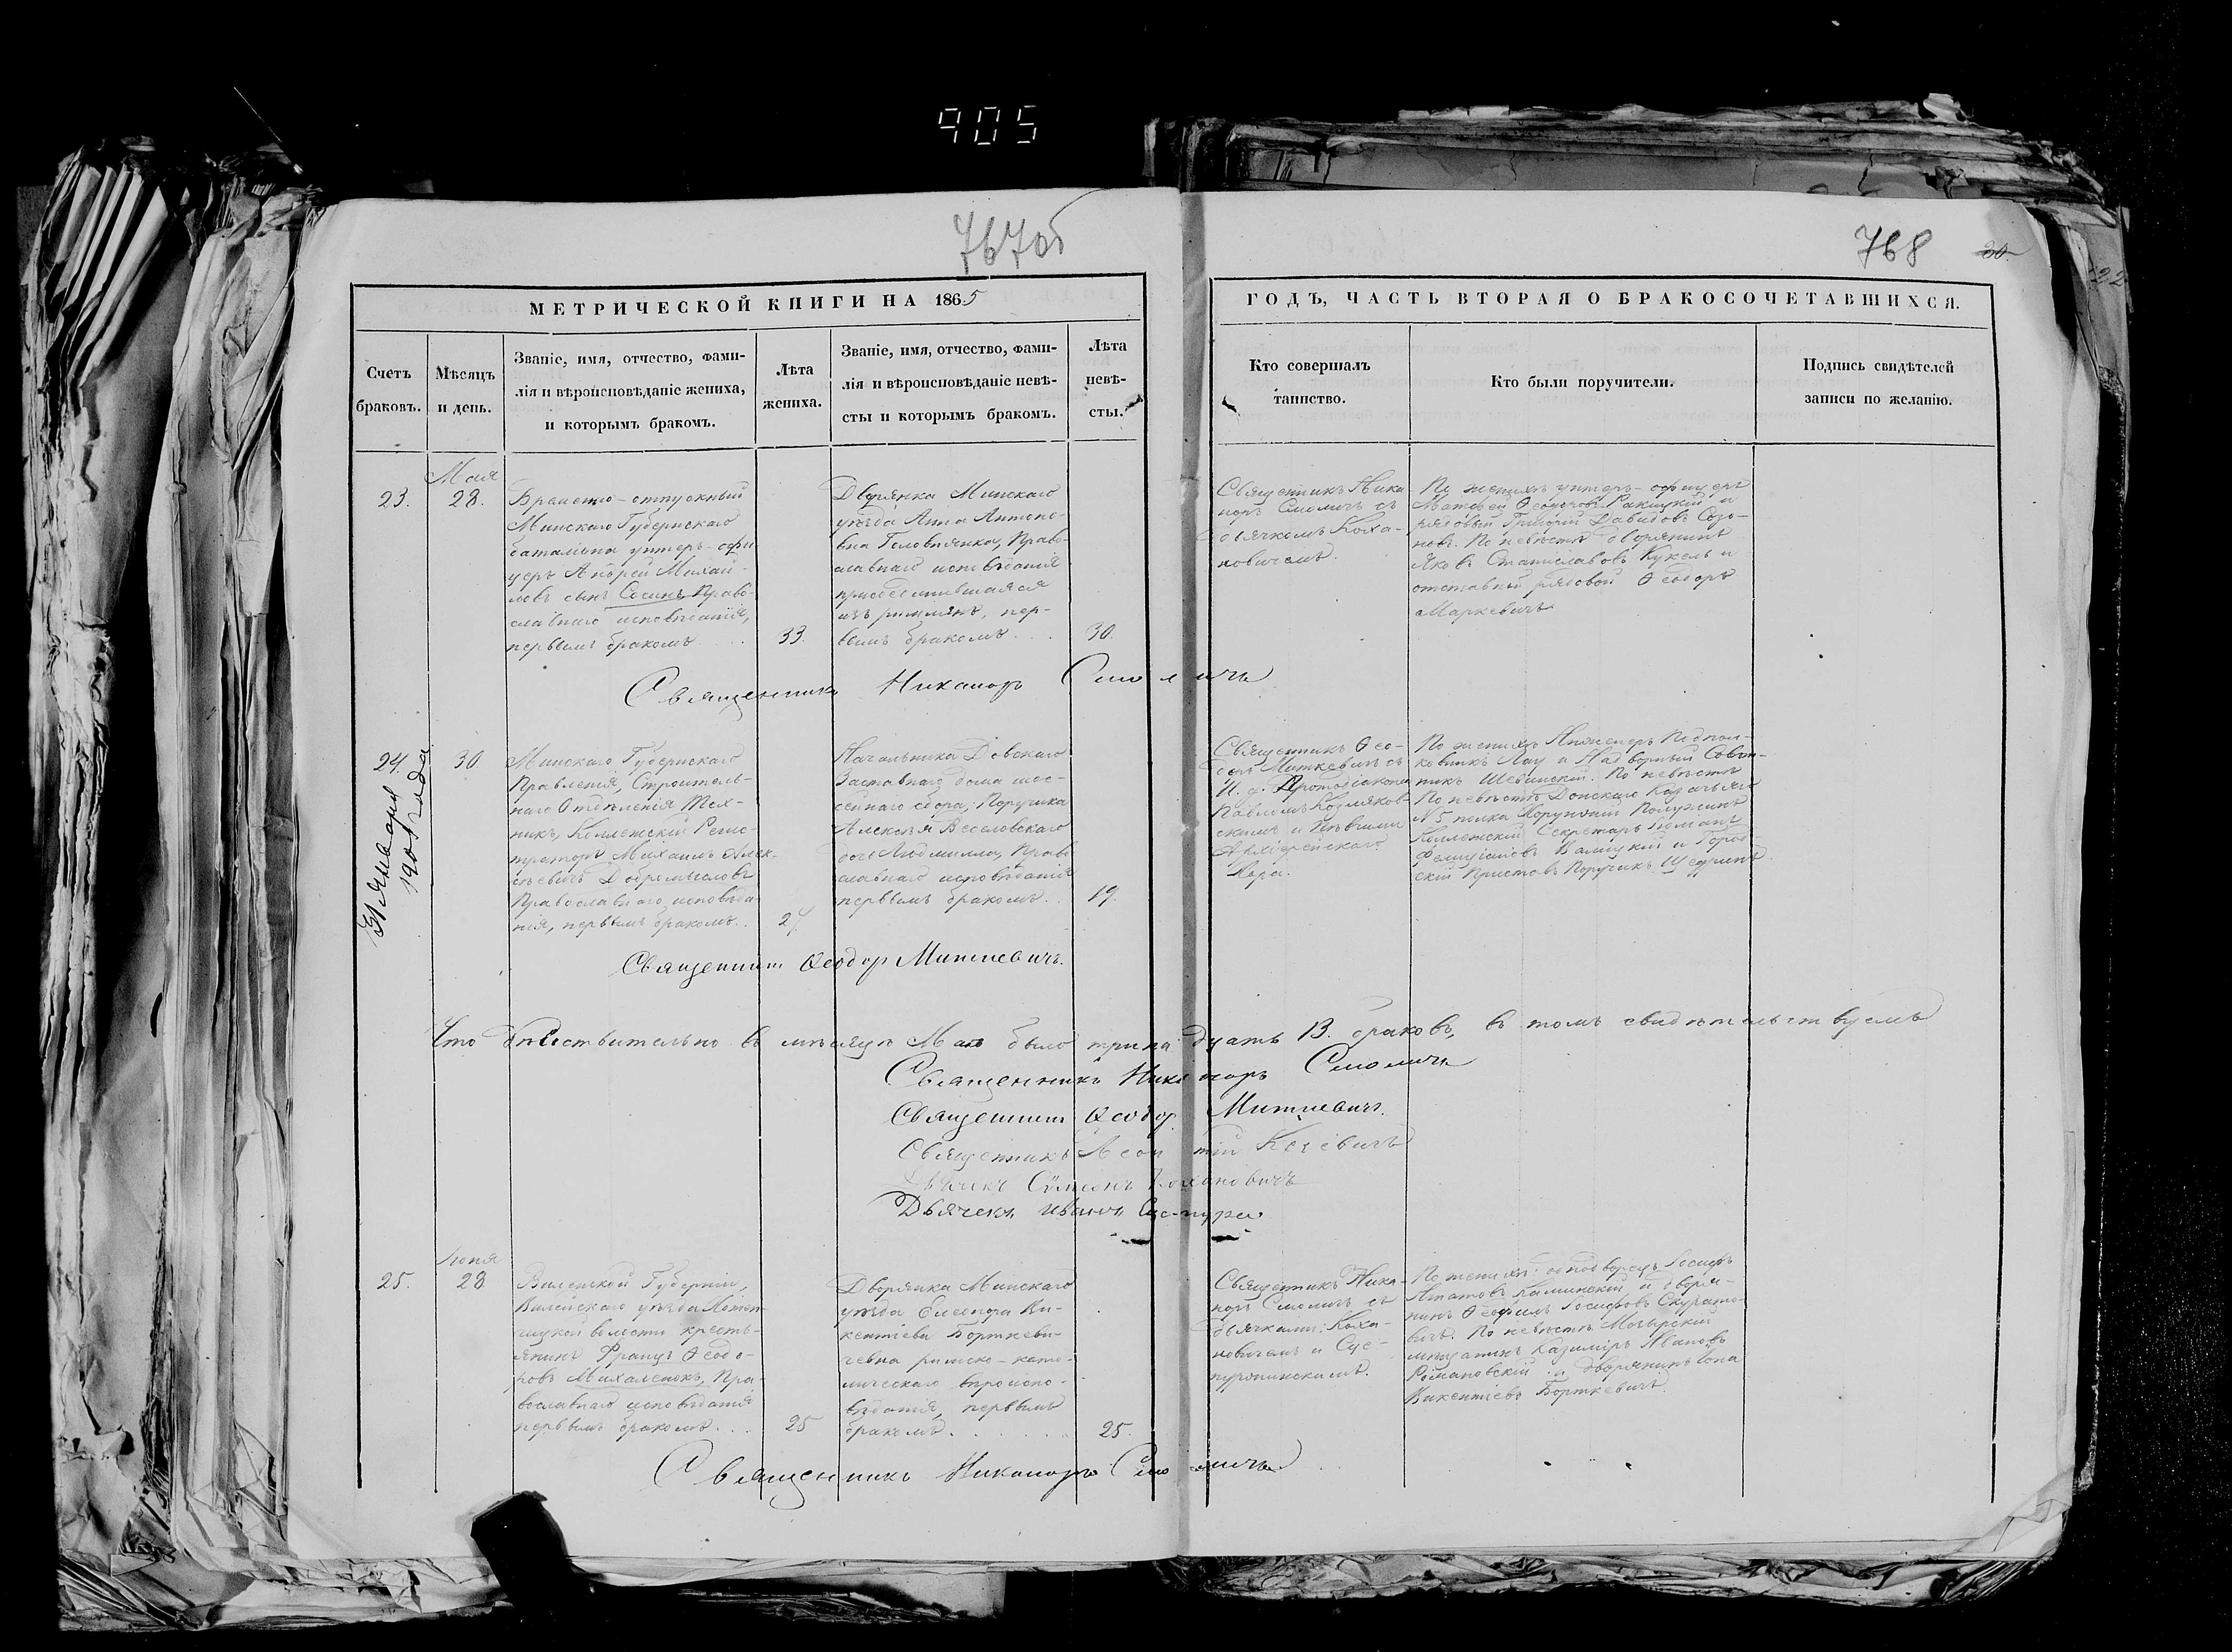 905
767об
768
30.
МЕТРИЧЕСКОЙ КНИГИ НА 1865
ГОДЪ, ЧАСТЬ ВТОРАЯ О БРАКОСОЧЕТАВШИХСЯ.
Счетъ
браковъ.
Мѣсяцъ
и день.
Званіе, имя, отчество, фами-
лія и вѣроисповѣданіе жениха,
и которымъ бракомъ.
Лѣта
жениха.
Званіе, имя, отчество, фами-
лія и вѣроисповѣданіе невѣ-
сты и которымъ бракомъ.
Лѣта
невѣ-
сты.
Кто совершалъ
таинство.
Кто были поручители.
Подпись свидѣтелей
записи по желанію.
23.
Мая
28.
Временно-отпускный
Минскаго Губернскаго
баталіона унтеръ-офи
церъ Андрей Михай-
ловъ сынъ Сосинъ Право-
славнаго исповѣданія,
первымъ бракомъ
33.
Дворянка Минскаго
уѣзда Анна Антоно-
вна Головнянка, Право-
славнаго исповѣданія
присоединившаяся
изъ римлянъ, пер-
вымъ бракомъ
30.
Священникъ Ника
норъ Смоличъ съ
дьячкомъ Коха-
новичемъ.
По женихѣ унтеръ-офицеръ
Матѳей Ѳеодоровъ Ракицкій и
рядовый Григорій Давидовъ Созо-
новъ. По невѣстѣ дворянинъ
Яковъ Станиславовъ Кукель и
отставный рядовой Ѳеодоръ
Маркевичъ
Священникъ Никаноръ Смоличъ
24.
30.
января
190 года
Минскаго Губернскаго
Правленія, Строитель-
наго Отдѣленія Тех-
никъ, Коллежскій Регис-
траторъ Михаилъ Алек-
сѣевичъ Добромысловъ
Православнаго исповѣда-
нія, первымъ бракомъ
27
Начальника Довскаго
Заставнаго дома шос-
сейнаго сбора, Поручика
Алексѣя Веселовскаго
дочь Людмилла, Право
славнаго исповѣданія
первымъ бракомъ
19.
Священникъ Ѳео-
доръ Миткевичъ съ
И. д. Протодіакона
Павломъ Козляков-
скимъ и пѣвчими
Архіерейскаго
Хора.
По женихѣ Инженеръ Подпол-
ковникъ Лау и Надворный Совѣт-
никъ Шевинскій. По невѣстѣ
По невѣстѣ Донскаго Казачьяго
№ 5 полка Хорунжій Полужинъ
Коллежскій Секретарь Юліанъ
Валицкій и Город-
скій Приставъ Поручикъ Щедринъ
Священникъ Ѳеодоръ Миткевичъ.
Что дѣйствительно въ мѣсяцѣ Маѣ было тринадцать 13. браковъ, въ томъ свидѣтельствуемъ
Священникъ Никаноръ Смоличъ
Священникъ Ѳеодоръ Миткевичъ.
Священникъ Леонтій
Дьячекъ Сѵмеонъ Кохановичъ
Дьячекъ Иванъ
25.
Іюня
28
Виленской Губерніи,
Вилейскаго уѣзда
волости кресть-
янинъ Францъ Ѳеодо-
ровъ Михаленокъ, Пра-
вославнаго исповѣданія
первымъ бракомъ
25
Дворянка Минскаго
уѣзда Елеонора Ви-
кентіева Борткеви-
чевна римско-като-
лическаго вѣроиспо-
вѣданія, первымъ
бракомъ
25.
Священникъ Ника-
норъ Смоличъ съ
дьячками: Коха-
новичемъ и Сце-
пуржинскимъ.
По женихѣ: однодворецъ Іосифъ
Игнатовъ Каминскій и дворя-
нинъ Ѳеофилъ Іосифовъ Скурато-
вичъ. По невѣстѣ Мозырскій
мѣщанинъ Казиміръ Ивановъ
Романовскій и дворянинъ
Викентіевъ Борткевичъ.
Священникъ Никаноръ Смоличъ